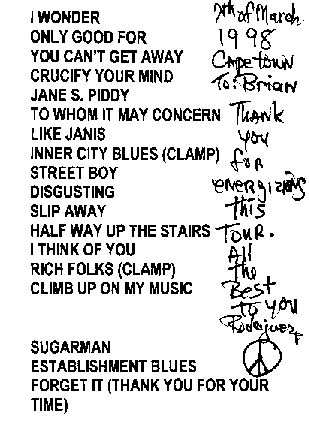 I WONDER
ONLY GOOD FOR
YOU CAN'T GET AWAY
CRUCIFY YOUR MIND
JANE S. PIDDY
TO WHOM IT MAY CONCERN
LIKE JANIS
INNER CITY BLUES (CLAMP)
STREET BOY
DISGUSTING
SLIP AWAY
HALF WAY UP THE STAIRS
I THINK OF YOU
RICH FOLKS (CLAMP)
CLIMB UP ON MY MUSIC
SUGARMAN
ESTABLISHMENT BLUES
FORGET IT (THANK YOU FOR YOUR
TIME)
of March
1998
Capetown
To: Brian
Thank
you
for
energizing
this
Tour.
All
The
Best
to you
Rodriguez